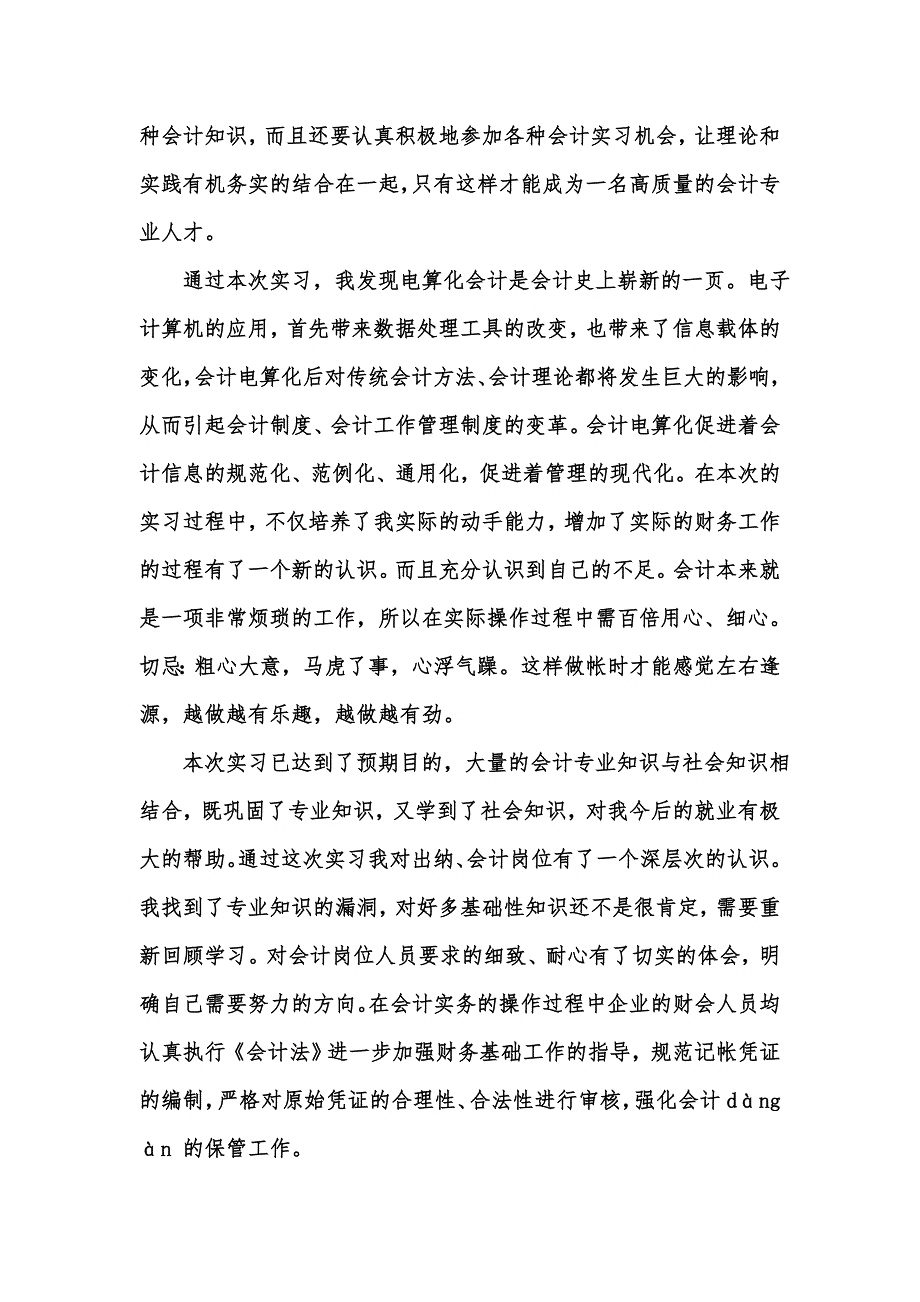 种会计知识，而且还要认真积极地参加各种会计实习机会，让理论和
实践有机务实的结合在一起，只有这样才能成为一名高质量的会计专
业人才。
通过本次实习，我发现电算化会计是会计史上崭新的一页。电子
计算机的应用，首先带来数据处理工具的改变，也带来了信息载体的
变化，会计电算化后对传统会计方法、会计理论都将发生巨大的影响，
从而引起会计制度、会计工作管理制度的变革。会计电算化促进着会
计信息的规范化、范例化、通用化，促进着管理的现代化。在本次的
实习过程中，不仅培养了我实际的动手能力，增加了实际的财务工作
的过程有了一个新的认识。而且充分认识到自己的不足。会计本来就
是一项非常烦琐的工作，所以在实际操作过程中需百倍用心、细心。
切忌：粗心大意，马虎了事，心浮气躁。这样做帐时才能感觉左右逢
源，越做越有乐趣，越做越有劲。
本次实习已达到了预期目的，大量的会计专业知识与社会知识相
结合，既巩固了专业知识，又学到了社会知识，对我今后的就业有极
大的帮助。通过这次实习我对出纳、会计岗位有了一个深层次的认识。
我找到了专业知识的漏洞，对好多基础性知识还不是很肯定，需要重
新回顾学习。对会计岗位人员要求的细致、耐心有了切实的体会，明
确自己需要努力的方向。在会计实务的操作过程中企业的财会人员均
认真执行《会计法》进一步加强财务基础工作的指导，规范记帐凭证
的编制，严格对原始凭证的合理性、合法性进行审核，强化会计 dàng
àn 的保管工作。